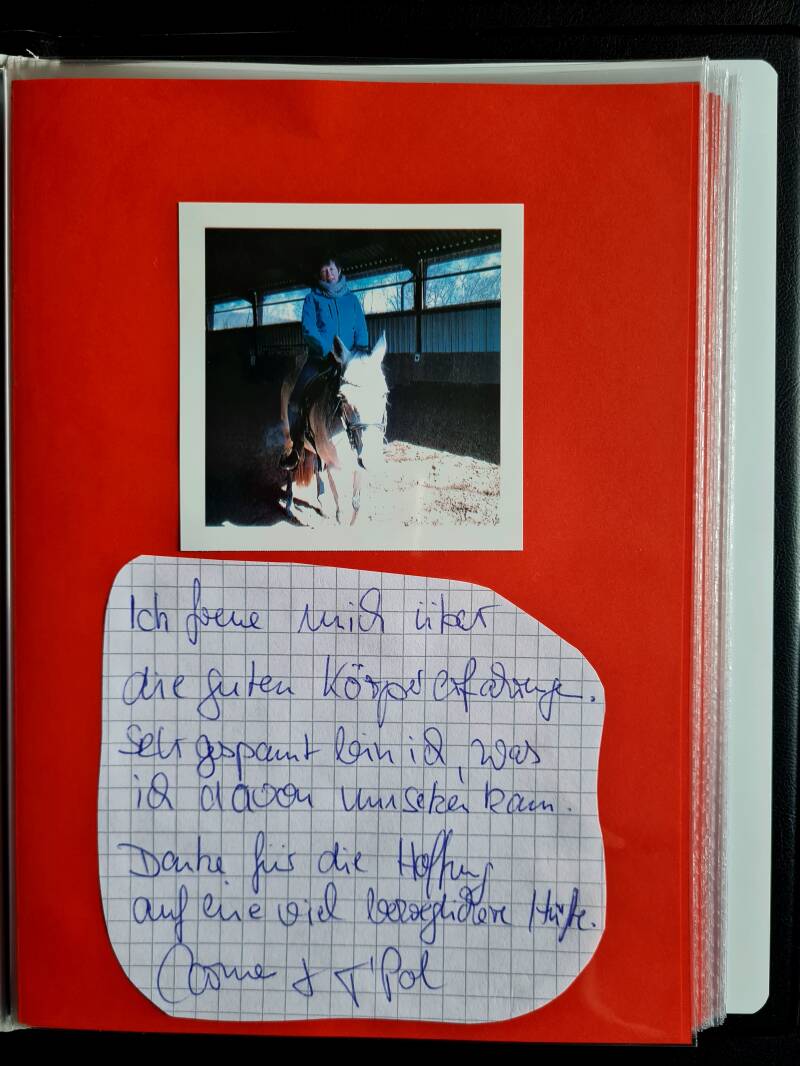 Ich freue mich über
die guten Körpererfahrungen.
Sehr gespannt bin ich, was
ich davon umsetzen kann.
Danke für die Hoffnung
auf eine viel beweglichere Hüfte.
& T'Pol